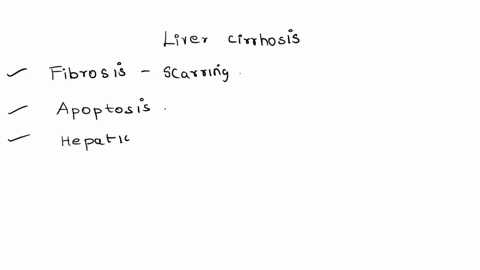 Liver cirrhosis
Fibrosis - Scarring.
Apoptosis.
Hepatic